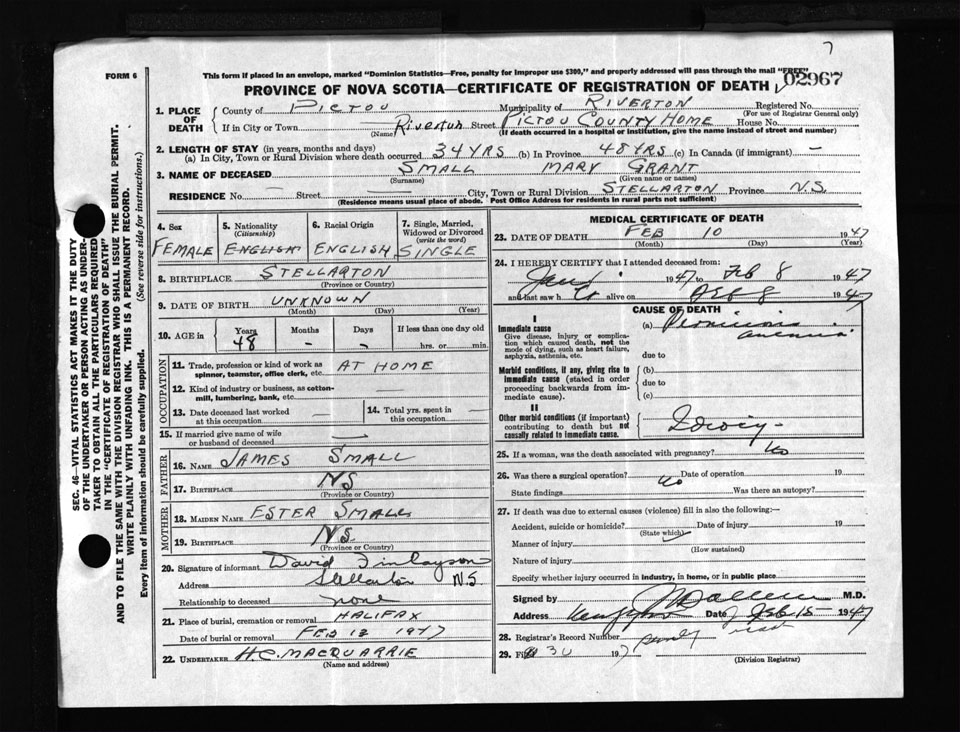 7
FORM 6
This form if placed in an envelope, marked "Dominion Statistics—Free, penalty for improper use $300," and properly addressed will pass through the mail "FREE"
02967
PROVINCE OF NOVA SCOTIA—CERTIFICATE OF REGISTRATION OF DEATH
1. PLACE OF DEATH
County of PICTOU Municipality of RIVERTON Registered No.
(For use of Registrar General only)
If in City or Town Riverton Street PICTOU COUNTY HOME House No.
(Name) (If death occurred in a hospital or institution, give the name instead of street and number)
2. LENGTH OF STAY (in years, months and days)
(a) In City, Town or Rural Division where death occurred 34 YRS (b) In Province 48 YRS (c) In Canada (if immigrant) —
3. NAME OF DECEASED SMALL MARY GRANT
(Surname) (Given name or names)
RESIDENCE No. — Street — City, Town or Rural Division STELLARTON Province N.S.
(Residence means usual place of abode. Post Office Address for residents in rural parts not sufficient)
SEC. 46—VITAL STATISTICS ACT MAKES IT THE DUTY
OF THE UNDERTAKER OR PERSON ACTING AS UNDER-
TAKER TO OBTAIN ALL THE PARTICULARS REQUIRED
IN THE "CERTIFICATE OF REGISTRATION OF DEATH"
AND TO FILE THE SAME WITH THE DIVISION REGISTRAR WHO SHALL ISSUE THE BURIAL PERMIT.
WRITE PLAINLY WITH UNFADING INK. THIS IS A PERMANENT RECORD.
Every item of information should be carefully supplied. (See reverse side for instructions.)
4. Sex
FEMALE
5. Nationality
(Citizenship)
ENGLISH
6. Racial Origin
ENGLISH
7. Single, Married,
Widowed or Divorced
(write the word)
SINGLE
8. BIRTHPLACE STELLARTON
(Province or Country)
9. DATE OF BIRTH UNKNOWN
(Month) (Day) (Year)
10. AGE in
Years Months Days If less than one day old
48 - - hrs. or min.
OCCUPATION
11. Trade, profession or kind of work as AT HOME
spinner, teamster, office clerk, etc.
12. Kind of industry or business, as cotton-
mill, lumbering, bank, etc. —
13. Date deceased last worked
at this occupation —
14. Total yrs. spent in
this occupation —
15. If married give name of wife
or husband of deceased —
FATHER
16. NAME JAMES SMALL
17. BIRTHPLACE NS
(Province or Country)
MOTHER
18. MAIDEN NAME ESTER SMALL
19. BIRTHPLACE N.S.
(Province or Country)
20. Signature of informant David Finlayson
Address Stellarton N.S.
Relationship to deceased none
21. Place of burial, cremation or removal HALIFAX
Date of burial or removal FEB 12 1947
22. UNDERTAKER H.C. MACQUARRIE
(Name and address)
MEDICAL CERTIFICATE OF DEATH
23. DATE OF DEATH FEB 10 1947
(Month) (Day) (Year)
24. I HEREBY CERTIFY that I attended deceased from:
Jan 1 1947 to Feb 8 1947
and last saw h er alive on Feb 8 1947
CAUSE OF DEATH
I
Immediate cause
Give disease, injury or complica-
tion which caused death, not the
mode of dying, such as heart failure,
asphyxia, asthenia, etc.
(a) Pernicious
anemia
due to
Morbid conditions, if any, giving rise to
immediate cause (stated in order
proceeding backwards from im-
mediate cause).
(b)
due to
(c)
II
Other morbid conditions (if important)
contributing to death but not
causally related to immediate cause.
Idiocy
25. If a woman, was the death associated with pregnancy? No
26. Was there a surgical operation? No Date of operation 19
State findings Was there an autopsy?
27. If death was due to external causes (violence) fill in also the following:—
Accident, suicide or homicide? Date of injury 19
(State which)
Manner of injury
(How sustained)
Nature of injury
Specify whether injury occurred in industry, in home, or in public place
Signed by M.D.
Address Date Feb 15 1947
28. Registrar's Record Number
29. 30 19
(Division Registrar)